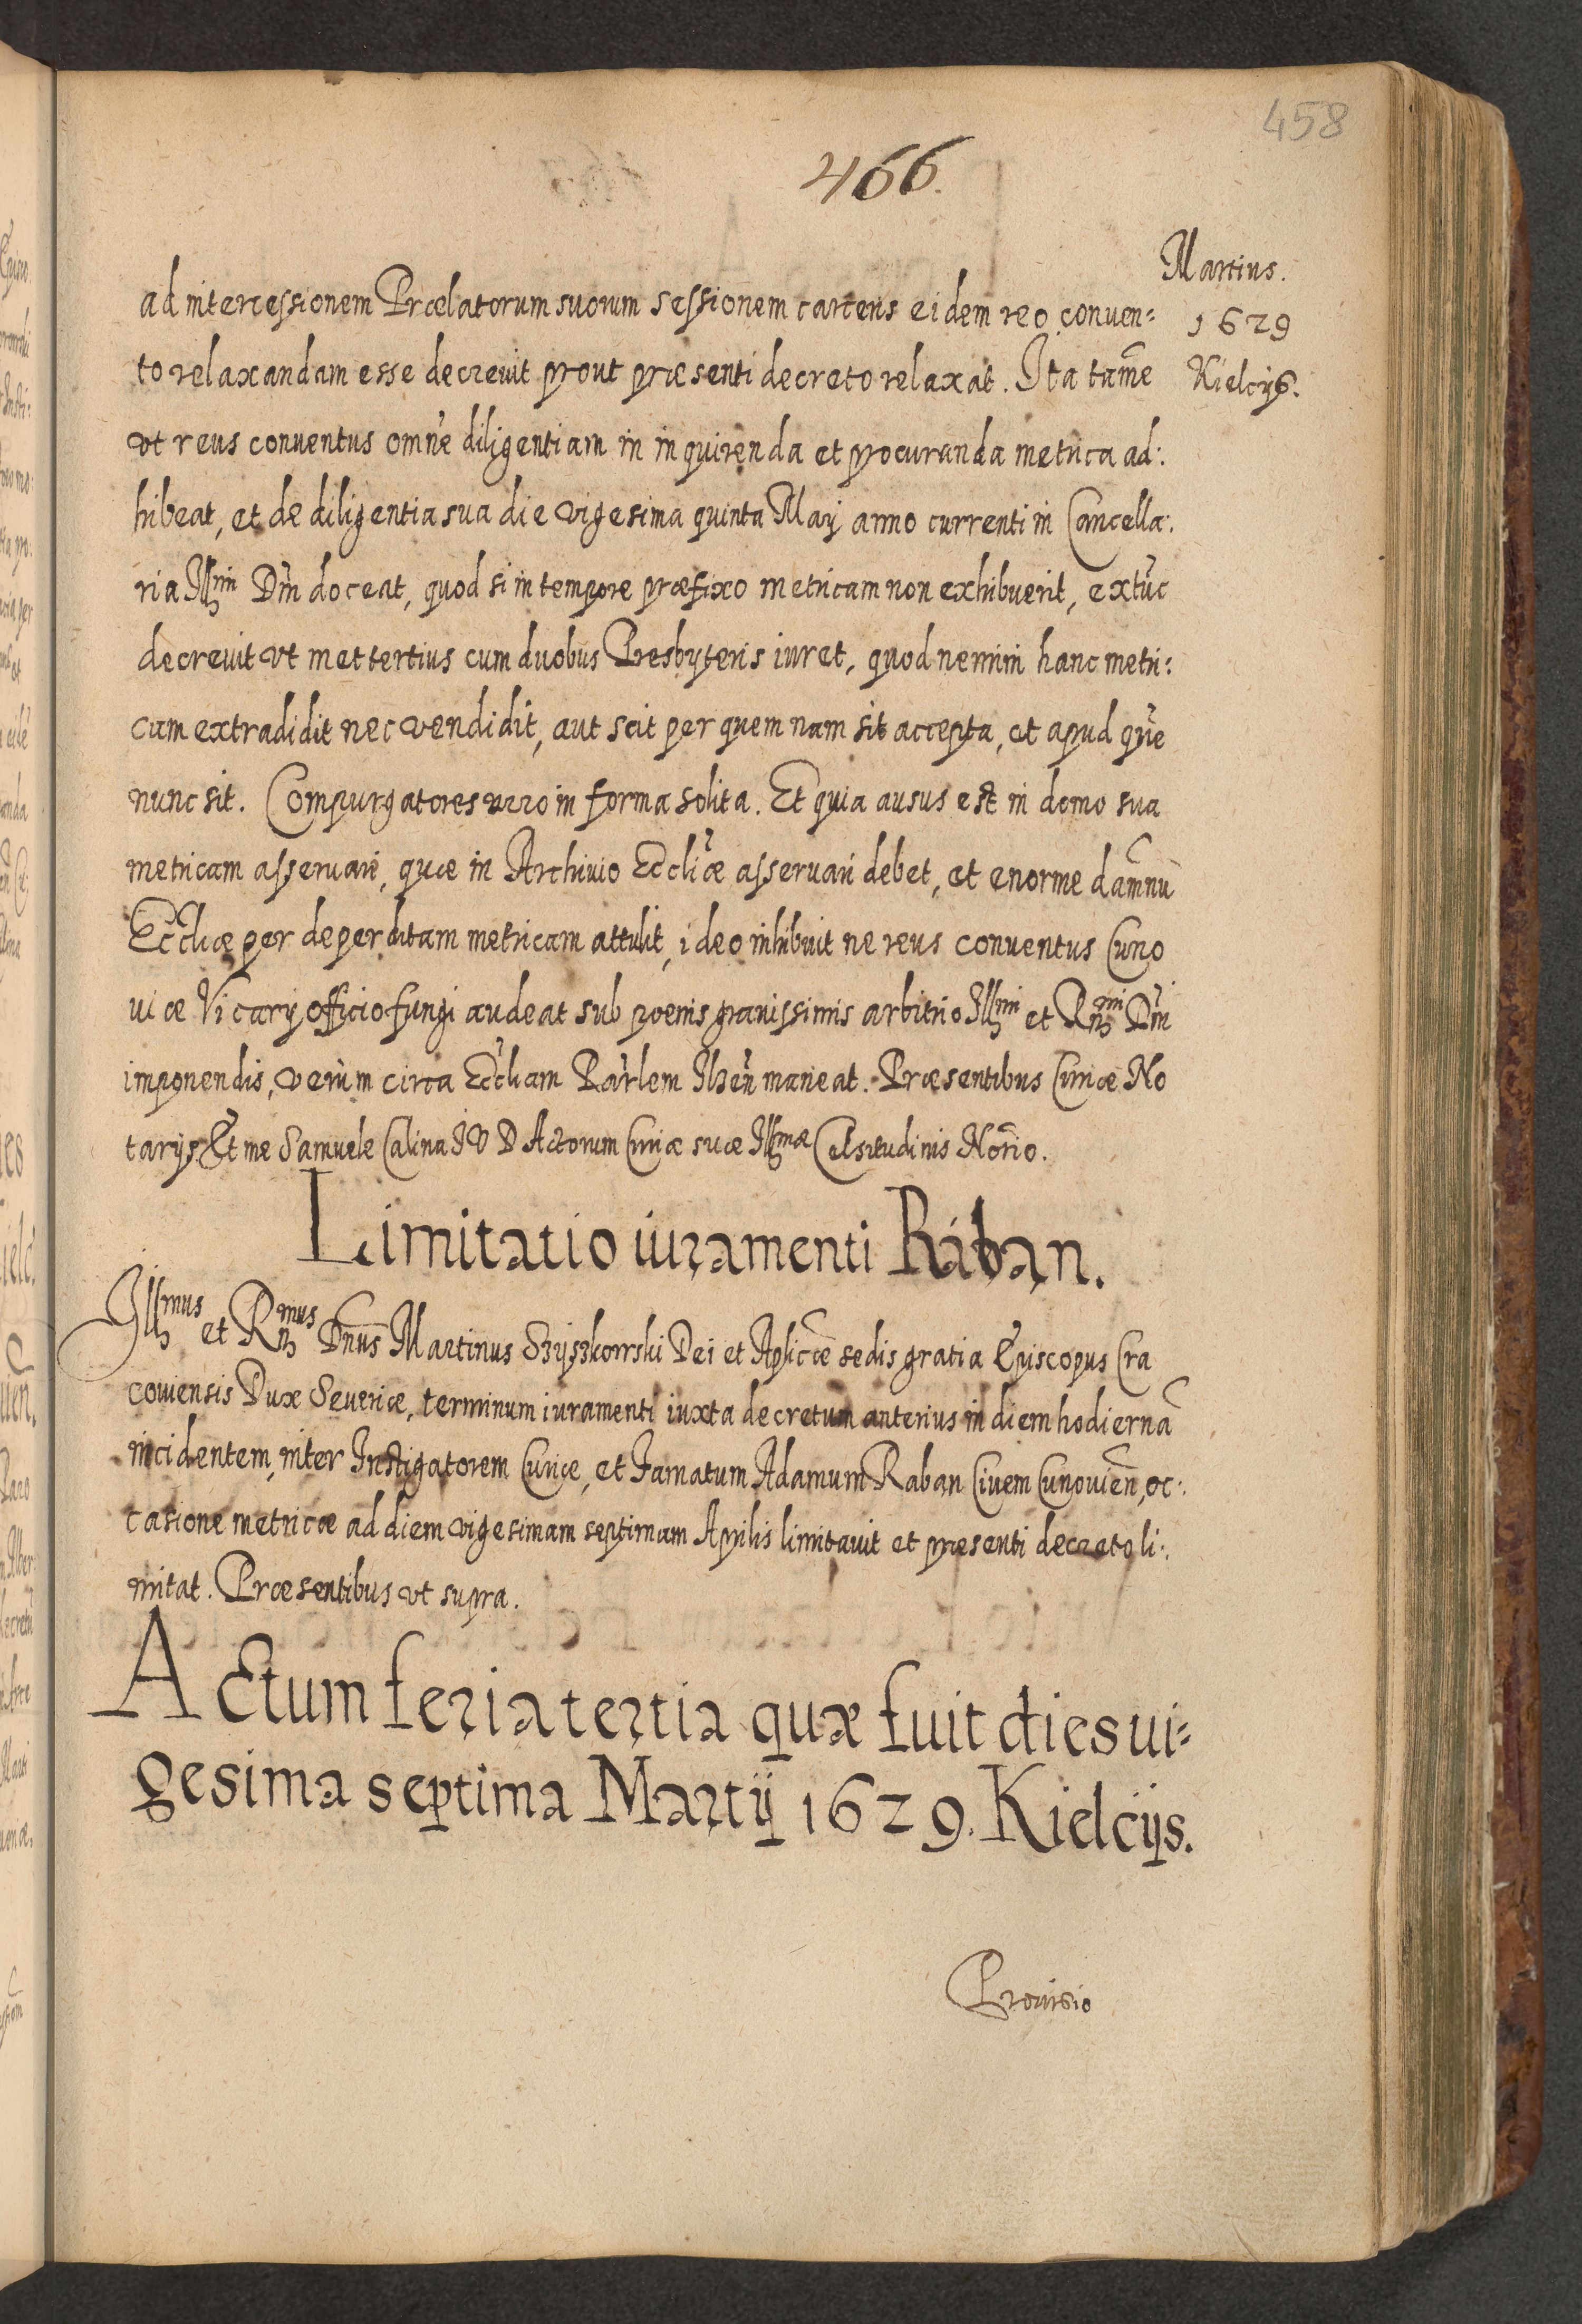 458
466.
Martius.
1629
Kielcijs.
ad intercessionem Prælatorum suorum sessionem carceris eidem reo conuen=
to relaxandam esse decreuit prout præsenti decreto relaxat. Ita tamē
vt reus conuentus omnē diligentiam in inquirenda et procuranda metrica ad:
hibeat, et de diligentia sua die vigesima quinta Maij anno currenti in Cancella:
ria Illmi Dni doceat, quod si in tempore præfixo metricam non exhibuerit, extūc
decreuit vt mettertius cum duobus Presbyteris iuret, quod nemini hanc metri:
cam extradidit nec vendidit, aut scit per quem nam sit accepta, et apud quē
nunc sit. Compurgatores vero in forma solita. Et quia ausus est in domo sua
metricam asseruari, quæ in Archiuio Eccliæ asseruari debet, et enorme damnū
Eccliæ per deperditam metricam attulit, ideo inhibuit ne reus conuentus Cuno
uiæ Vicarij officio fungi audeat sub poenis grauissimis arbitrio Illmi et Rmi Dni
imponendis, verùm circa Eccliam Parlem Ilzen maneat. Præsentibus Curiæ No
tarijs Et me Samuele Calina I V D Actorum Curiæ suæ Illmæ Celsitudinis Notrio.
Limitatio iuramenti Rában.
Illmus et Rmus Dnus Martinus Szyszkowski Dei et Aplicæ sedis gratia Episcopus Cra
couiensis Dux Seueriæ, terminum iuramenti iuxta decretum anterius in diem hodiernā
incidentem, inter Instigatorem Curiæ, et Famatum Adamum Raban Ciuem Cunouien, oc:
casione metricæ ad diem vigesimam septimam Aprilis limitauit et presenti decreto li:
mitat. Præsentibus vt supra.
Actum feria tertia quæ fuit dies ui=
gesima septima Martij 1629. Kielcijs.
Prouisio